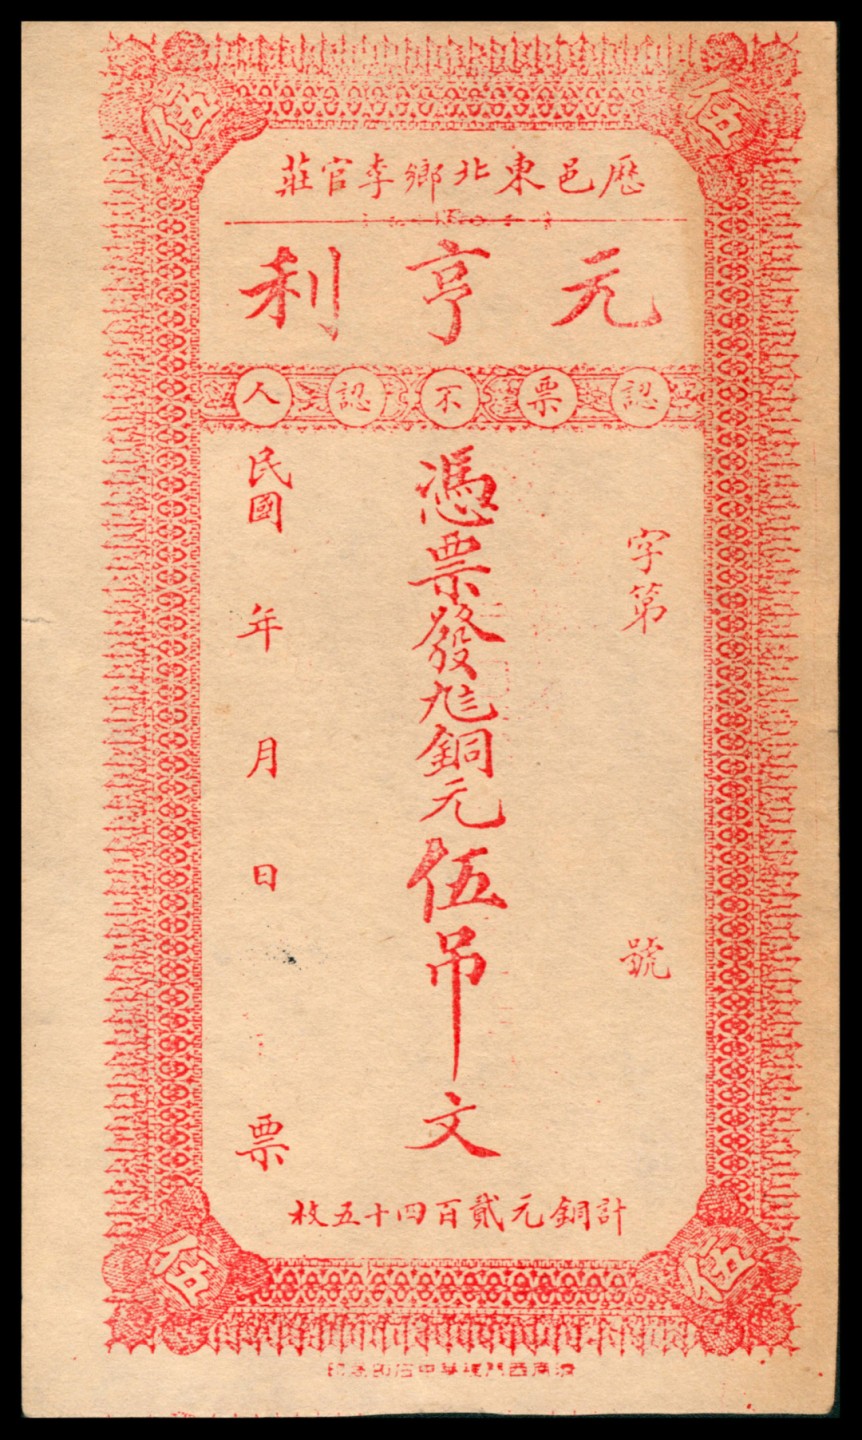 伍
伍
厯邑東北鄉李官莊
元亨利
認票不認人
字第 號
憑票發 銅元伍吊文
民國 年 月 日 票
計銅元貳百四十五枚
伍
伍
南西門 華中石印 印